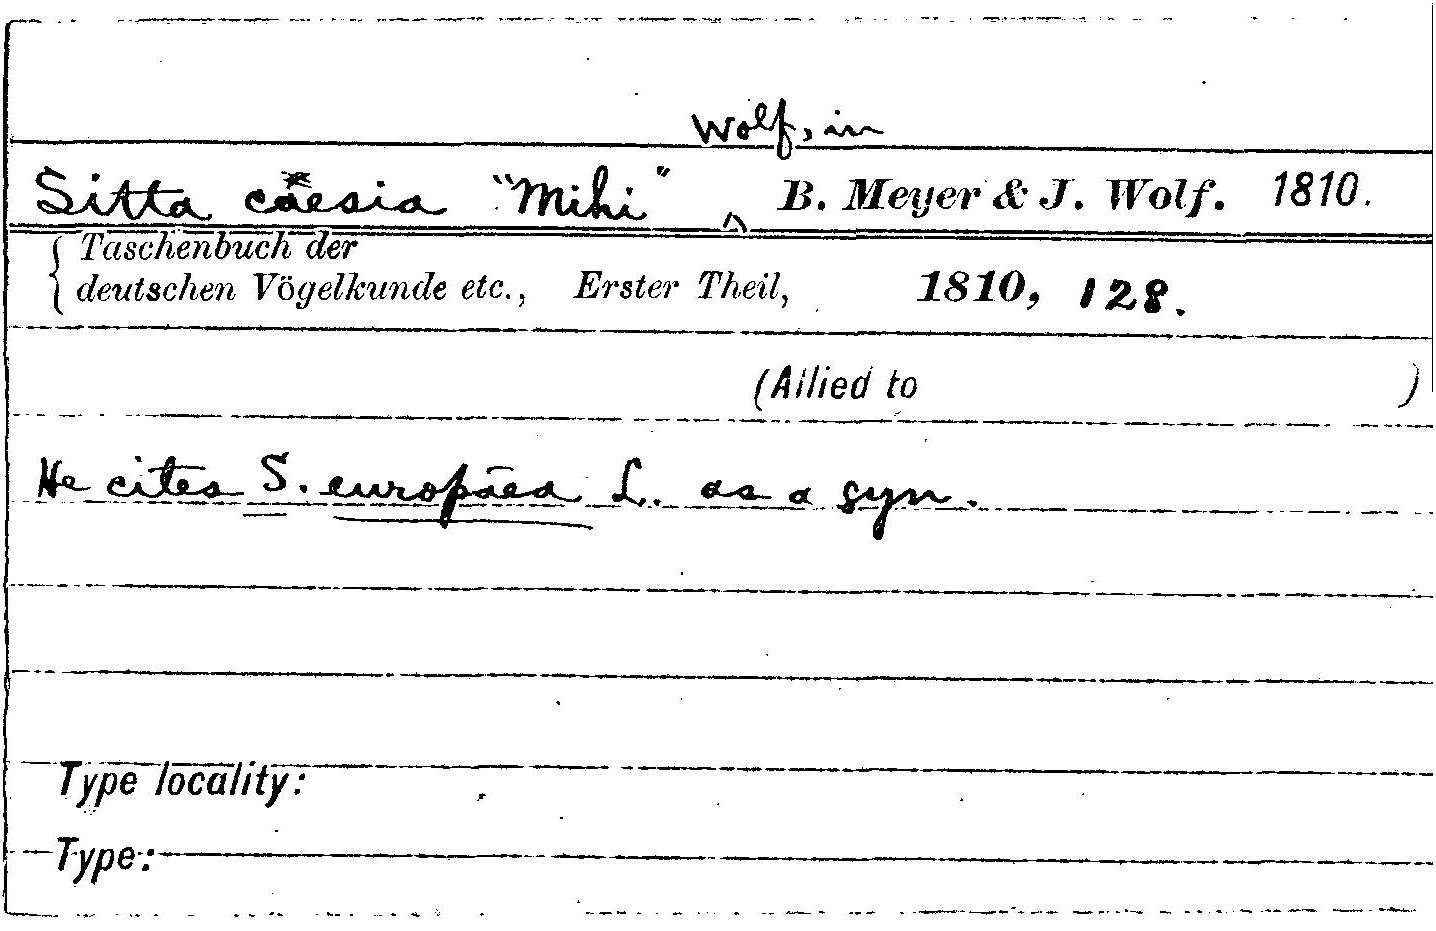 Wolf, in
Sitta caesia "Mihi" ^ B. Meyer & J. Wolf. 1810.
{ Taschenbuch der
deutschen Vögelkunde etc., Erster Theil, 1810, 128.
(Allied to )
He cites S. europaea L. as a syn.
Type locality:
Type: